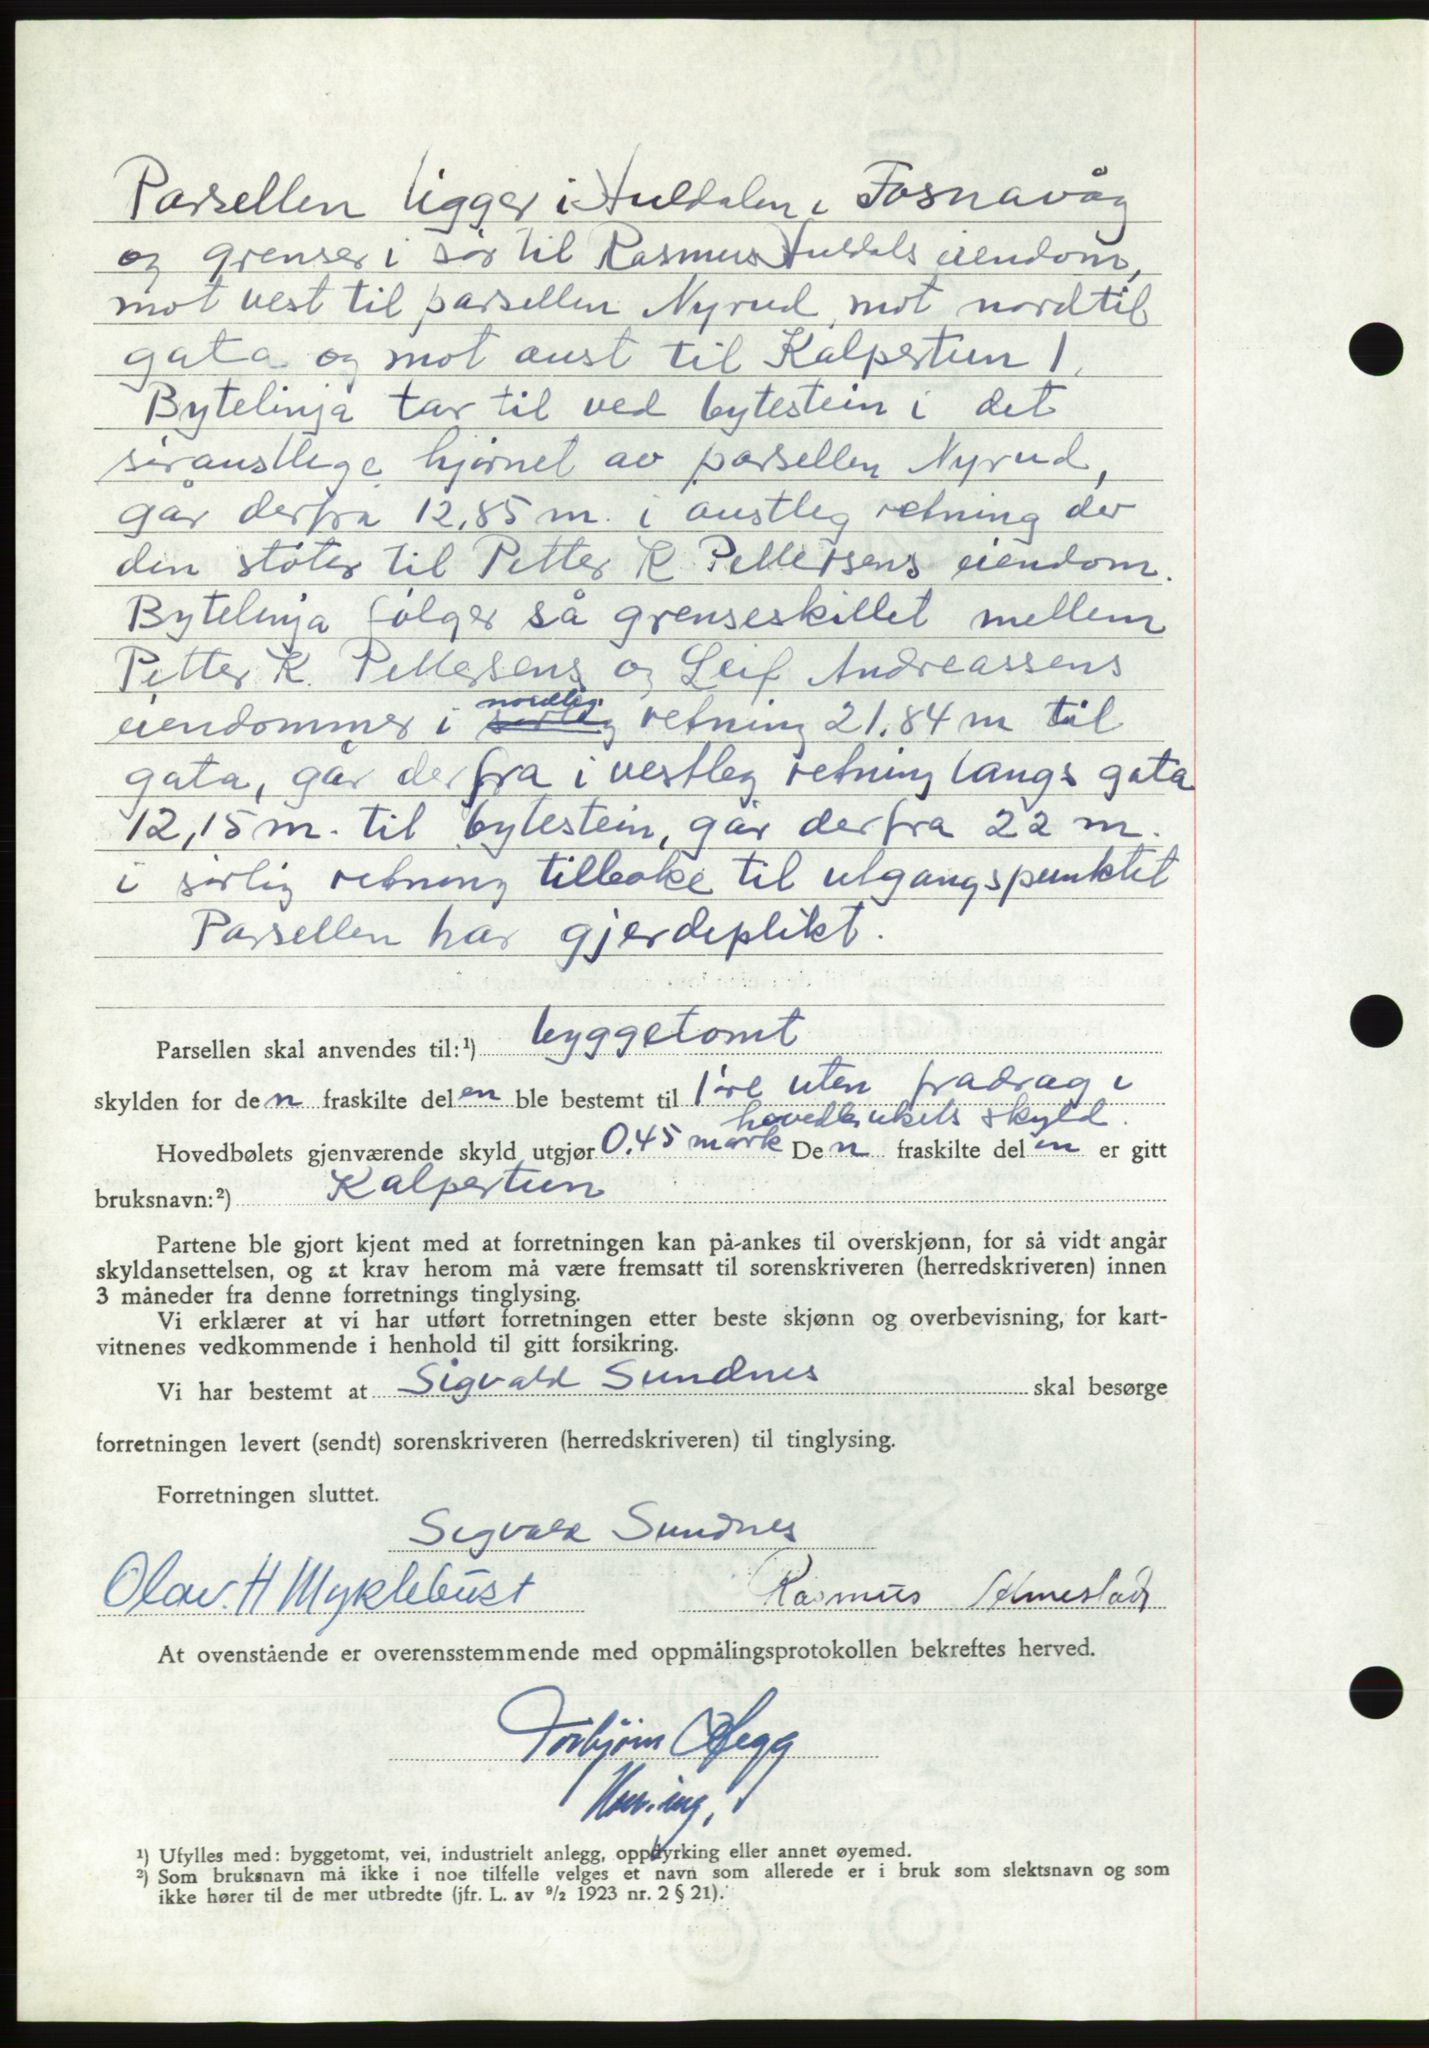 Parsellen ligger i Huldalen i Fosnavåg
og grenser i sør til Rasmus Huldals eiendom,
mot vest til parsellen Nyrud, mot nord til
gata og mot aust til Kalpertun 1.
Bytelinja tar til ved bytestein i det
søraustlege hjørnet av parsellen Nyrud,
går derfra 12,85 m. i austleg retning der
den støter til Petter K. Pettersens eiendom.
Bytelinja følger så grenseskillet mellem
Petter K. Pettersens og Leif Andreassens
nordleg
eiendommer i sørleg retning 21.84 m til
gata, går derfra i vestleg retning langs gata
12,15 m. til bytestein, går derfra 22 m.
i sørlig retning tilbake til utgangspunktet
Parsellen har gjerdeplikt.
Parsellen skal anvendes til:¹) byggetomt
skylden for den fraskilte delen ble bestemt til 1 øre uten fradrag i
hovedbrukets skyld.
Hovedbølets gjenværende skyld utgjør 0.45 mark Den fraskilte delen er gitt
bruksnavn:²) Kalpertun
Partene ble gjort kjent med at forretningen kan på-ankes til overskjønn, for så vidt angår
skyldansettelsen, og at krav herom må være fremsatt til sorenskriveren (herredskriveren) innen
3 måneder fra denne forretnings tinglysing.
Vi erklærer at vi har utført forretningen etter beste skjønn og overbevisning, for kart-
vitnenes vedkommende i henhold til gitt forsikring.
Vi har bestemt at Sigvald Sundnes skal besørge
forretningen levert (sendt) sorenskriveren (herredskriveren) til tinglysing.
Forretningen sluttet.
Sigvald Sundnes
Olav. H Myklebust Rasmus
At ovenstående er overensstemmende med oppmålingsprotokollen bekreftes herved.
Torbjørn
¹) Ufylles med: byggetomt, vei, industrielt anlegg, oppdyrking eller annet øyemed.
²) Som bruksnavn må ikke i noe tilfelle velges et navn som allerede er i bruk som slektsnavn og som
ikke hører til de mer utbredte (jfr. L. av ⁹/₂ 1923 nr. 2 § 21).